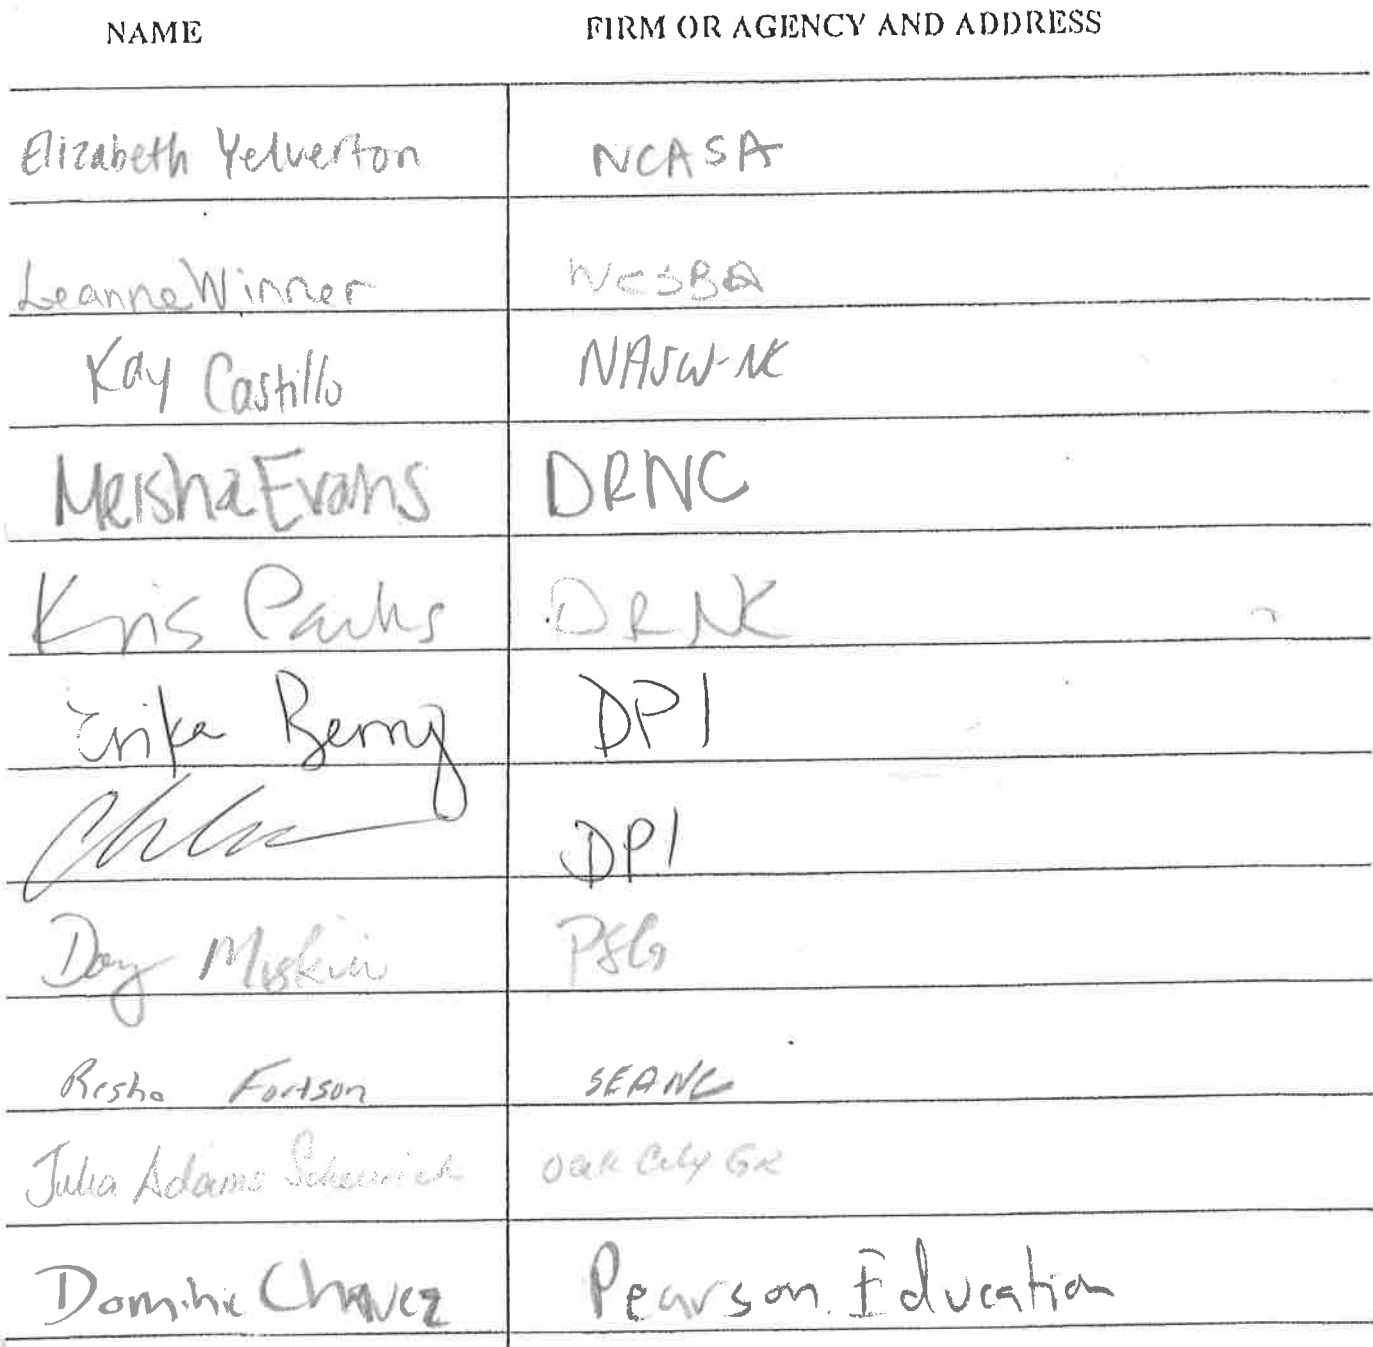 NAME FIRM OR AGENCY AND ADDRESS
Elizabeth Yelverton NCASA
Leanne Winner NCSBA
Kay Castillo NASW-NC
Meisha Evans DRNC
Kris Parks DRNC
Erika Berry DPI
DPI
Doug Miskin PSG
Risha Fortson SEANC
Julia Adams Scheurich Oak City GR
Dominic Chavez Pearson Education